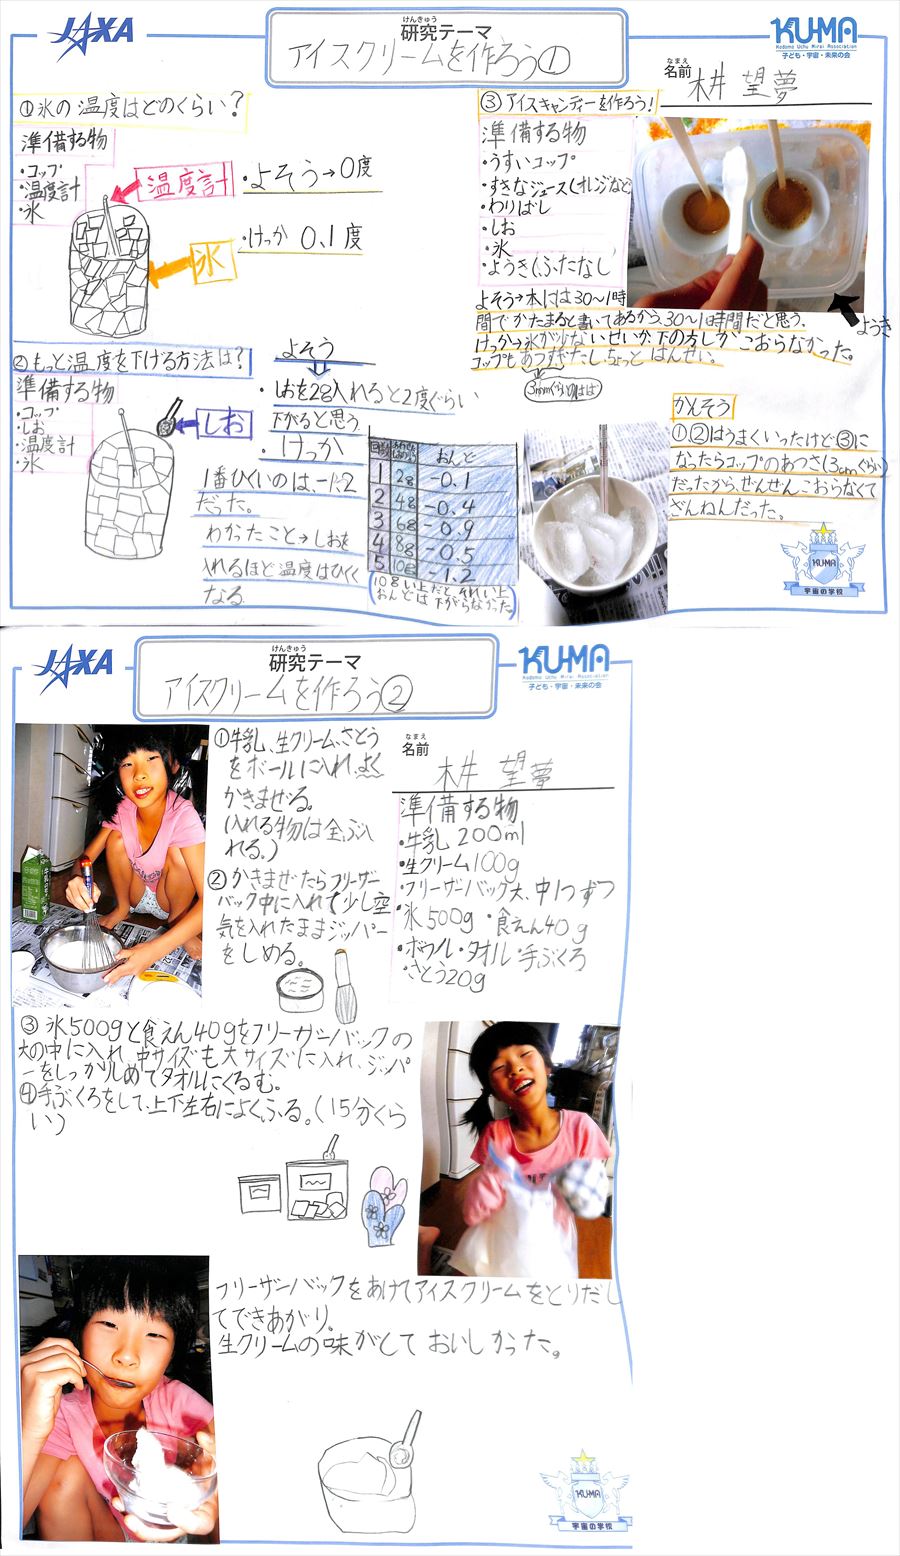 JAXA
けんきゅう
研究テーマ
アイスクリームを作ろう①
KU-MA
Kodomo Uchu Mirai Association
子ども・宇宙・未来の会
なまえ
名前
望夢
①氷の温度はどのくらい?
準備する物
・コップ
・温度計
・氷
温度計
氷
・よそう→0度
・けっか 0.1度
②もっと温度を下げる方法は?
準備する物
・コップ
・しお
・温度計
・氷
しお
よそう
・しおを2g入れると2度ぐらい
下がると思う
・けっか
1番ひくいのは、-1.2
だった。
わかったこと→しおを
入れるほど温度はひくく
なる
回数
おんど
1 2g -0.1
2 4g -0.4
3 6g -0.9
4 8g -0.5
5 10g -1.2
(10g以上だと、それ以上
おんどは下がらなかった)
③アイスキャンディーを作ろう!
準備する物
・うすいコップ
・すきなジュース(オレンジなど)
・わりばし
・しお
・氷
・ようき(ふたなし)
ようき
よそう→本には30〜1時
間でかたまると書いてあるから、30〜1時間だと思う、
けっか→氷が少ないせいか、下の方しかこおらなかった。
コップもあつすぎたし、ちょっとはんせい。
かんそう
①②はうまくいったけど③に
なったらコップのあつさ(3cmぐらい)
だったから、ぜんぜんこおらなくて
ざんねんだった。
KU-MA
宇宙の学校
JAXA
けんきゅう
研究テーマ
アイスクリームを作ろう②
KU-MA
Kodomo Uchu Mirai Association
子ども・宇宙・未来の会
なまえ
名前
望夢
①牛乳、生クリーム、さとう
をボールに入れ、よく
かきまぜる。
(入れる物は全ぶ入
れる。)
②かきまぜたらフリーザー
バック中に入れて少し空
気を入れたままジッパー
をしめる。
準備する物
・牛乳 200ml
・生クリーム100g
・フリーザーバッグ大、中1つずつ
・氷500g ・食えん40g
・ボウル・タオル・手ぶくろ
・さとう20g
③氷500gと食えん40gをフリーザーバックの
大の中に入れ、中サイズも大サイズに入れ、ジッパ
ーをしっかりしめてタオルにくるむ。
④手ぶくろをして、上下左右によくふる。(15分くら
い)
フリーザーバックをあけてアイスクリームをとりだし
てできあがり。
生クリームの味がとてもおいしかった。
KU-MA
宇宙の学校